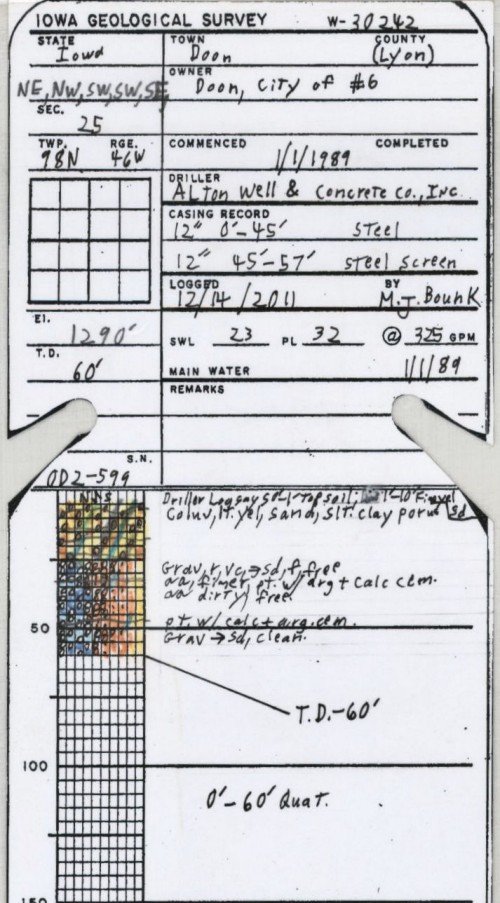 IOWA GEOLOGICAL SURVEY W-30242
STATE TOWN COUNTY
Iowa Doon (Lyon)
OWNER
NE, NW, SW, SW, SE, Doon, City of #6
SEC.
25
TWP. RGE. COMMENCED COMPLETED
98N 46W 1/1/1989
DRILLER
Alton Well & Concrete Co., Inc.
CASING RECORD
12" 0'-45' Steel
12" 45'-57' Steel Screen
LOGGED BY
12/14/2011 M.J. Bounk
El. 1290' SWL 23 PL 32 @ 325 GPM
T.D. 60' MAIN WATER 1/1/89
REMARKS
S.N.
OD2-599
NNS
Driller Log say 50-1' Topsoil; 1-10' Fi. gravel
Coluv, lt. yel, sand, slt. clay sd
Grav, r, vc, → sd, f, free
aa, finer, pt. w/ arg + calc cem.
aa dirty, free.
50 pt. w/ calc + arg. cem.
Grav → sd, clean.
T.D.-60'
100
0'-60' Quat.
150